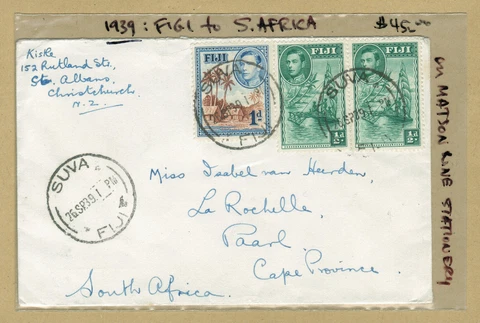 1939: FIGI to S. AFRICA
$45.00
Kiske
152 Rutland Ste,
St. Albans,
Christchurch
N.Z.
FIJI
1d
FIJI
½d
FIJI
½d
SUVA
FIJI
SUVA
26.SP.39.1 PM
FIJI
SUVA
26 SP 39 1 PM
Miss Isabel van Heerden,
La Rochelle,
Paarl.
Cape Province.
South Africa.
ON MATSON LINE STATIONERY